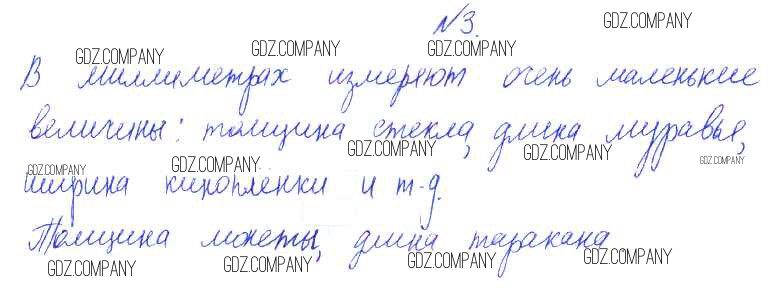 №3.
В миллиметрах измеряют очень маленькие
величины: толщина стекла, длина муравья,
ширина кинопленки и т.д.
Толщина монеты, длина таракана.
GDZ.COMPANY
GDZ.COMPANY
GDZ.COMPANY
GDZ.COMPANY
GDZ.COMPANY
GDZ.COMPANY
GDZ.COMPANY
GDZ.COMPANY
GDZ.COMPANY
GDZ.COMPANY
GDZ.COMPANY
GDZ.COMPANY
GDZ.COMPANY